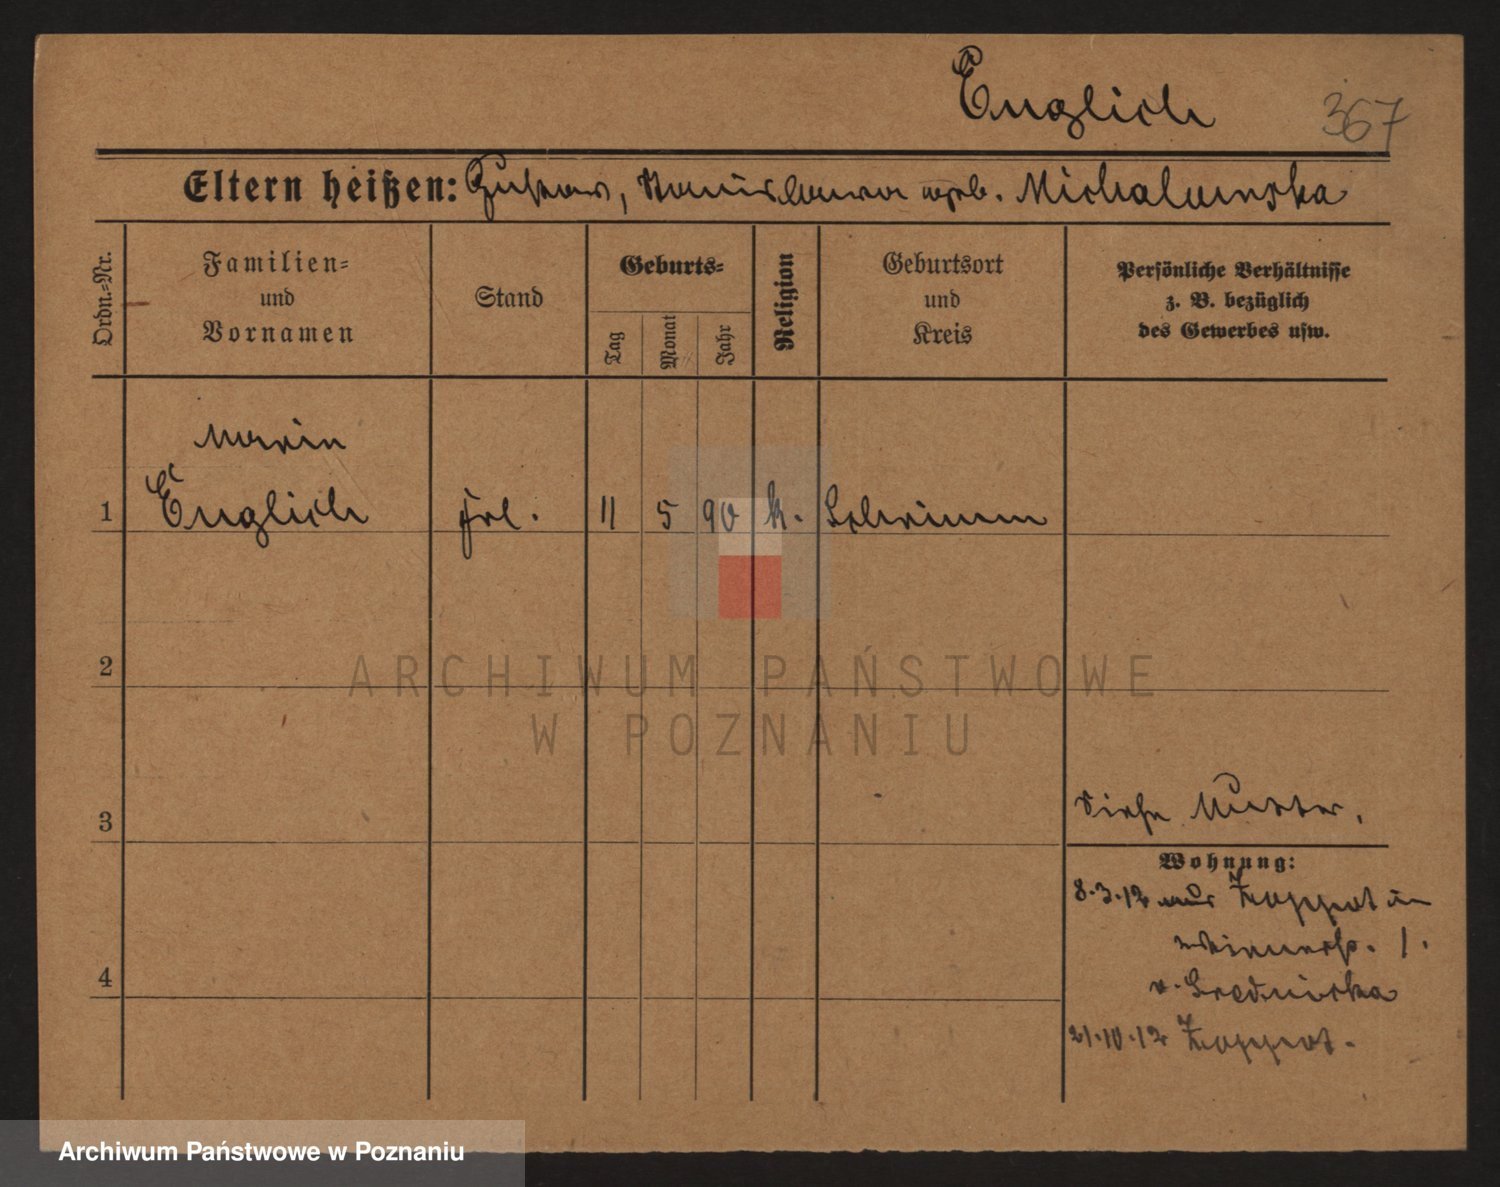 Englich 367
Eltern heißen: Gustav, Stanislawa geb. Michalowska
Ordn.-Nr.
Familien-
und
Vornamen
Stand
Geburts-
Tag
Monat
Jahr
Religion
Geburtsort
und
Kreis
Persönliche Verhältnisse
z. B. bezüglich
des Gewerbes usw.
Maria
1 Englich frl. 11 5 90 k. Schrimm
2
3
Siehe Mutter.
Wohnung:
8.3.12 aus Zoppot in
1.
v. Srednicka
4
21.10.12 Zoppot.
ARCHIWUM PAŃSTWOWE
W POZNANIU
Archiwum Państwowe w Poznaniu